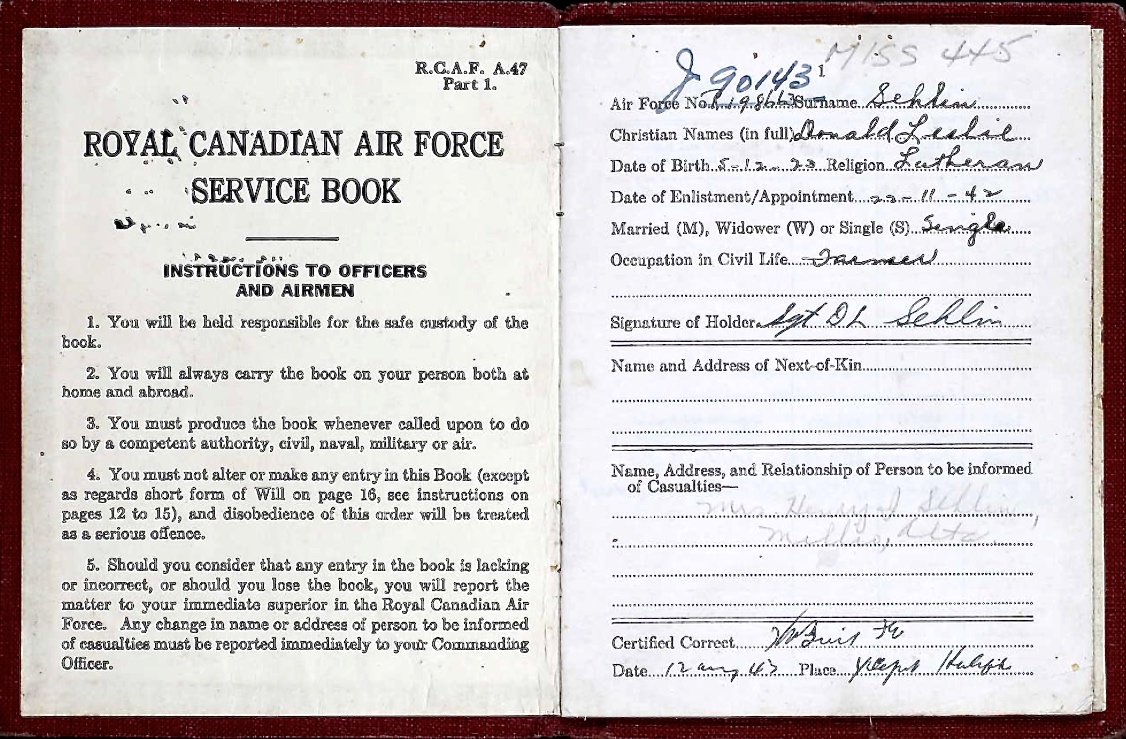 R.C.A.F. A.47
Part 1.
ROYAL CANADIAN AIR FORCE
SERVICE BOOK
INSTRUCTIONS TO OFFICERS
AND AIRMEN
1. You will be held responsible for the safe custody of the
book.
2. You will always carry the book on your person both at
home and abroad.
3. You must produce the book whenever called upon to do
so by a competent authority, civil, naval, military or air.
4. You must not alter or make any entry in this Book (except
as regards short form of Will on page 16, see instructions on
pages 12 to 15), and disobedience of this order will be treated
as a serious offence.
5. Should you consider that any entry in the book is lacking
or incorrect, or should you lose the book, you will report the
matter to your immediate superior in the Royal Canadian Air
Force. Any change in name or address of person to be informed
of casualties must be reported immediately to your Commanding
Officer.
MISS 445
J 90143
1
Air Force No. Surname Sehlin
Christian Names (in full) Donald Leslie
Date of Birth 5-12-23 Religion Lutheran
Date of Enlistment/Appointment 23-11-42
Married (M), Widower (W) or Single (S) Single
Occupation in Civil Life Farmer
Signature of Holder Sgt D L Sehlin
Name and Address of Next-of-Kin
Name, Address, and Relationship of Person to be informed
of Casualties—
Mrs Henry J Sehlin,
Millet, Alta
Certified Correct
Date 12 Aug 43 Place